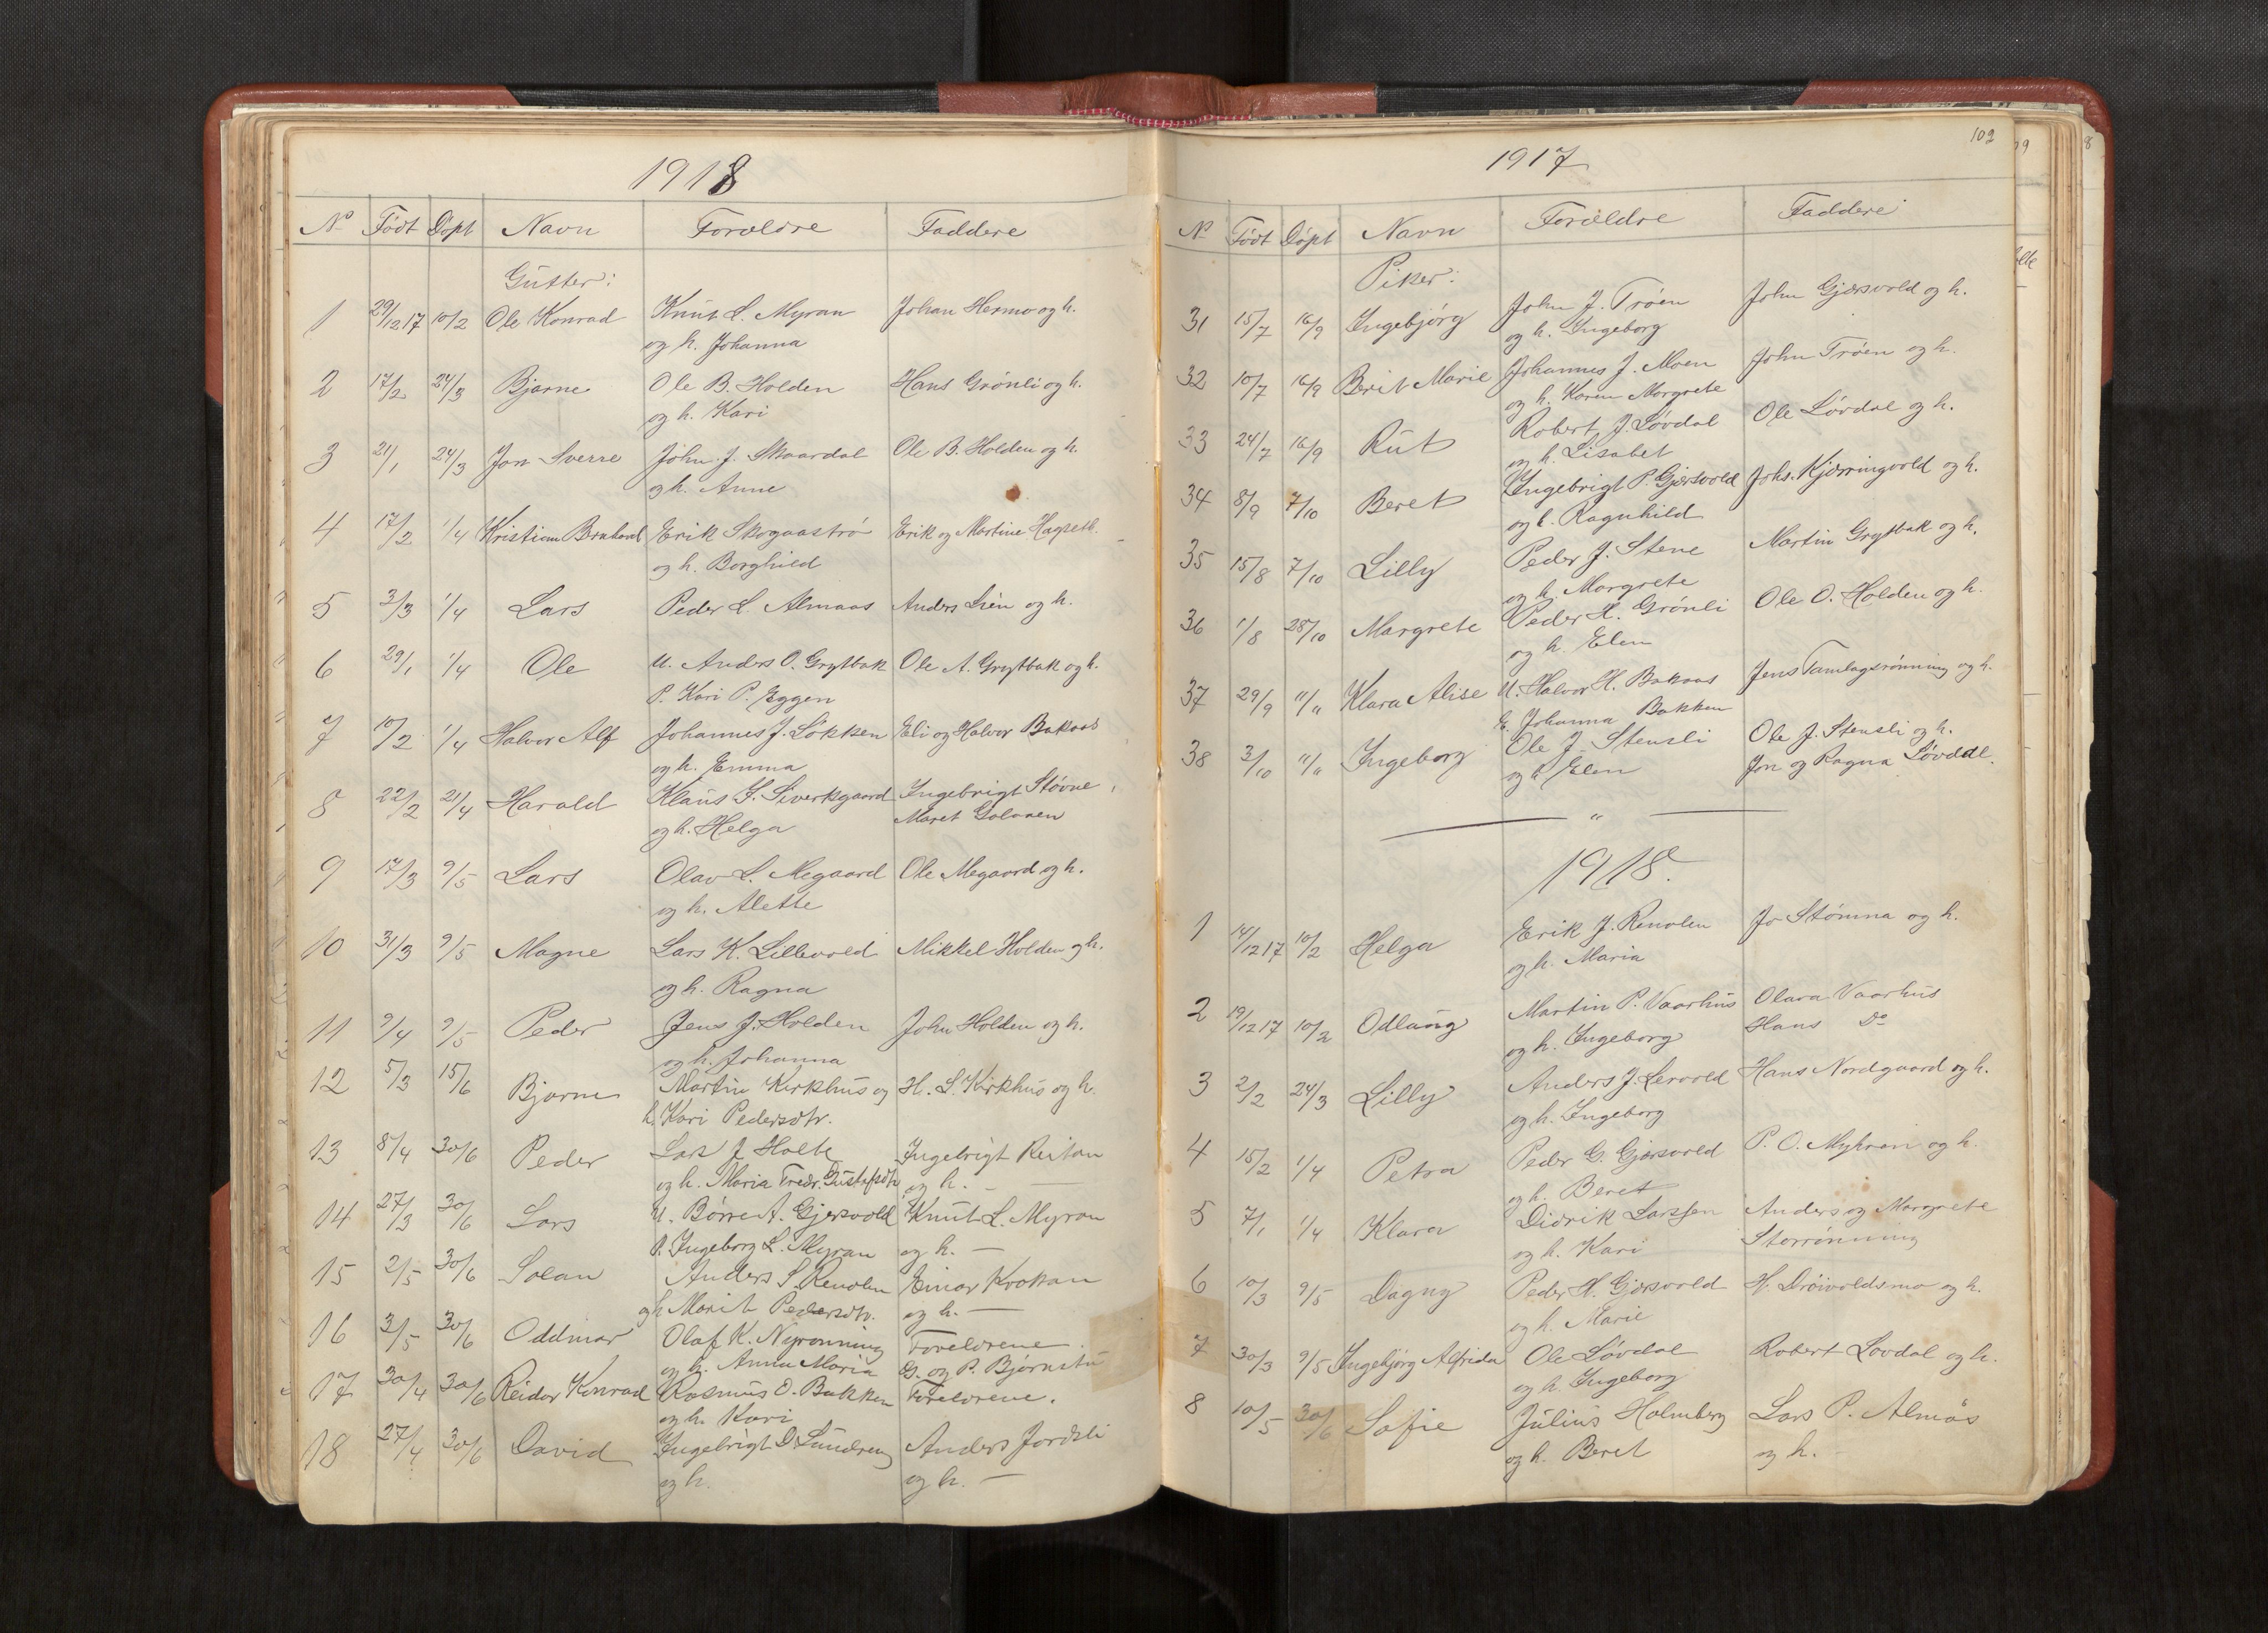 1918
No Født Døpt Navn Forældre Faddere
Gutter:
1 29/12 17 10/2 Ole Konrad Knut L. Myran Johan Hermo og h.
og h. Johanna
2 17/2 24/3 Bjarne Ole B. Holden Hans Grönli og h.
og h. Kari
3 21/1 24/3 Jon Sverre John J. Skaardal Ole B. Holden og h.
og h. Anne
4 17/2 1/4 Kristian Bernhard Erik Skogaaströ Erik og Martine Hagseth.
og h. Borghild
5 3/3 1/4 Lars Peder L. Almaas Anders Lien og h.
6 29/1 1/4 Ole U. Anders O. Grytbak Ole A. Grytbak og h.
P. Kari P. Eggen
7 10/2 1/4 Halvor Alf Johannes J. Lökken Eli og Halvor Bakaas
og h. Emma
8 22/2 21/4 Harald Klaus S. Siverksgaard Ingebrigt Støvne,
og h. Helga Maret Golaaen
9 17/3 9/5 Lars Olav L. Megaard Ole Megaard og h.
og h. Alette
10 31/3 9/5 Magne Lars K. Lillevold Mikkel Holden og h.
og h. Ragna
11 9/4 9/5 Peder Jens J. Holden John Holden og h.
og h. Johanna
12 5/3 15/6 Bjarne Martin Kirkhus og H. L. Kirkhus og h.
h. Kari Pedersdtr.
13 8/4 30/6 Peder Lars J Holte Ingebrigt Reitan
og h. Maria Fredr. Gustafsdtr og h. —
14 27/3 30/6 Lars U. Börre A. Gjersvold Knut L. Myran
P. Ingeborg L. Myran og h. —
15 2/5 30/6 Solan Anders S. Renolen Einar Krokan
og h Marit Pedersdtr. og h. —
16 3/5 30/6 Oddmar Olaf K. Nyrønning Foreldrene.
og h. Anna Maria G. og P. Bjørnstu
17 30/4 30/6 Reidar Konrad Rasmus O. Bakken Foreldrene.
og h. Kari
18 27/4 30/6 David Ingebrigt D. Lundreng Anders Jordsli
og h. og h. —
102
1917
No Født Døpt Navn Forældre Faddere
Piker:
31 15/7 16/9 Ingebjörg John J. Tröen John Gjersvold og h.
og h. Ingeborg
32 10/7 16/9 Berit Marie Johannes J. Moen John Tröen og h.
og h. Karen Margrete
33 24/7 16/9 Rut Robert J. Løvdal Ole Løvdal og h.
og h. Lisabet
34 8/9 7/10 Beret Ingebrigt P. Gjersvold Johs. Kjerringvold og h.
og h. Ragnhild
35 15/8 7/10 Lilly Peder J. Stene Martin Grytbak og h.
og h. Margrete
36 1/8 28/10 Margrete Peder H. Grönli Ole O. Holden og h.
og h. Elen
37 29/9 11/11 Klara Alise U. Halvor H. Bakaas Jens Tamlagsrønning og h.
E. Johanna Bakken
38 3/10 11/11 Ingeborg Ole J. Stensli Ole J. Stensli og h.
og h Elen Jon og Ragna Løvdal.
— " —
1918.
1 14/12 17 10/2 Helga Erik J. Renolen Jo Stömna og h.
og h. Maria
2 19/12 17 10/2 Odlaug Martin P. Vaarhus Olara Vaarhus
og h. Ingeborg Hans Do
3 2/2 24/3 Lilly Anders J. Lervold Hans Nordgaard og h.
og h. Ingeborg
4 15/2 1/4 Petra Peder G. Gjersvold P. O. Myhran og h.
og h. Beret
5 7/1 1/4 Klara Didrik Larssen Anders og Margrete
og h. Kari Storrönning
6 10/3 9/5 Dagny Peder H. Gjersvold H. Dröivoldsmo og h.
og h. Marie
7 30/3 9/5 Ingebjørg Alfrida Ole Løvdal Robert Løvdal og h.
og h. Ingeborg
8 10/5 30/6 Sofie Julius Holmberg Lars P. Almås
og h. Beret og h. -